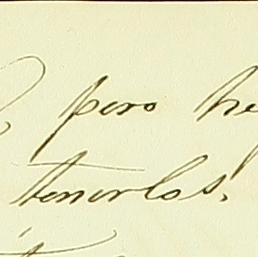 pero he
tenerlos!